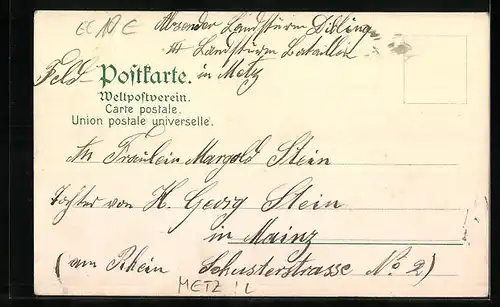 EC 18 E
Absender Landsturm Diblinger
III Landsturm Bataillon
in Metz
Feld Postkarte.
Weltpostverein.
Carte postale.
Union postale universelle.
An Fräulein Margold Stein
Tochter von H. Georg Stein
in Mainz
(am Rhein Schusterstrasse No 2)
METZ